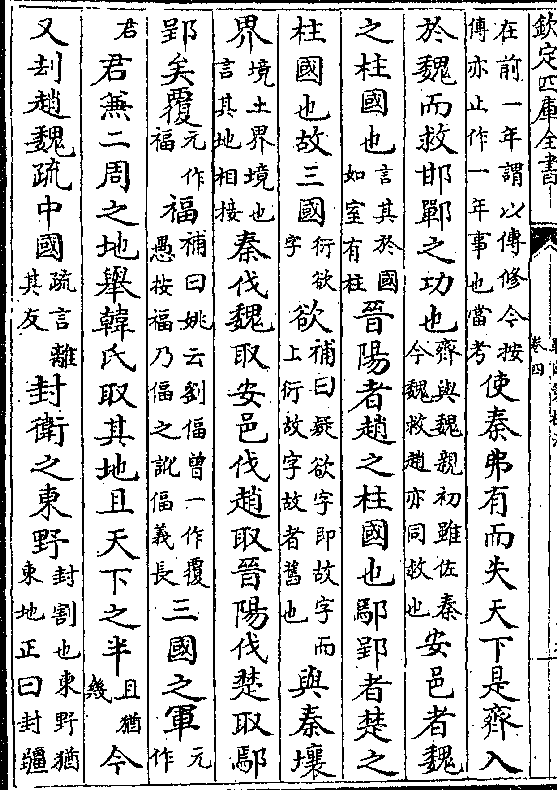 欽定四庫全書
卷四
在前一年謂以傳修今按傳亦止作一年事也當考使秦弗有而失天下是齊入
於魏而救邯鄲之功也齊與魏親初雖佐秦今魏救趙亦同救也安邑者魏
之柱國也言其於國如室有柱晉陽者趙之柱國也鄢郢者楚之
柱國也故三國衍欲字欲補曰疑欲字即故字而上衍故字故者舊也與秦壤
界境土界境也言其地相接秦伐魏取安邑伐趙取晉陽伐楚取鄢
郢矣覆元作福福補曰姚云劉偪曾一作覆愚按福乃偪之訛偪義長三國之軍元作
君君兼二周之地舉韓氏取其地且天下之半且猶幾今
又刦趙魏疏中國疏言離其友封衛之東野封割也東野猶東地正曰封疆